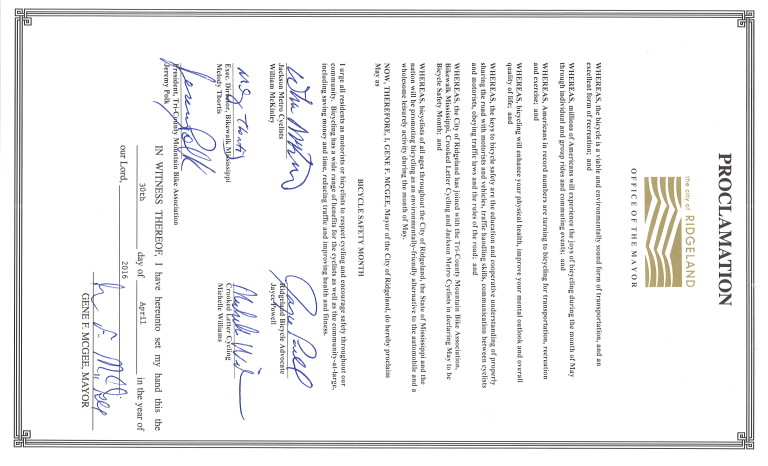 PROCLAMATION
the city of RIDGELAND
OFFICE OF THE MAYOR
WHEREAS, the bicycle is a viable and environmentally sound form of transportation, and an
excellent form of recreation; and
WHEREAS, millions of Americans will experience the joys of bicycling during the month of May
through individual and group rides and commuting events; and
WHEREAS, Americans in record numbers are turning to bicycling for transportation, recreation
and exercise; and
WHEREAS, bicycling will enhance your physical health, improve your mental outlook and overall
quality of life; and
WHEREAS, the keys to bicycle safety are the education and cooperative understanding of properly
sharing the road with motorists and vehicles, traffic handling skills, communication between cyclists
and motorists, obeying traffic laws and the rules of the road; and
WHEREAS; the City of Ridgeland has joined with the Tri-County Mountain Bike Association,
Bikewalk Mississippi, Crooked Letter Cycling and Jackson Metro Cyclists in declaring May to be
Bicycle Safety Month; and
WHEREAS, bicyclists of all ages throughout the City of Ridgeland, the State of Mississippi and the
nation will be promoting bicycling as an environmentally-friendly alternative to the automobile and a
wholesome leisurely activity during the month of May.
NOW, THEREFORE, I, GENE F. MCGEE, Mayor of the City of Ridgeland, do hereby proclaim
May as
BICYCLE SAFETY MONTH
I urge all residents as motorists or bicyclists to respect cycling and encourage safety throughout our
community. Bicycling has a wide range of benefits for the cyclists as well as the community-at-large,
including saving money and time, reducing traffic and improving health and fitness.
Jackson Metro Cyclists
William McKinley
Ridgeland Bicycle Advocate
Jayce Powell
Exec. Director, Bikewalk Mississippi
Melody Thortis
Crooked Letter Cycling
Michelle Williams
President, Tri-County Mountain Bike Association
Jeremy Polk
IN WITNESS THEREOF, I have hereunto set my hand this the
30th day of April in the year of
our Lord, 2016
GENE F. MCGEE, MAYOR